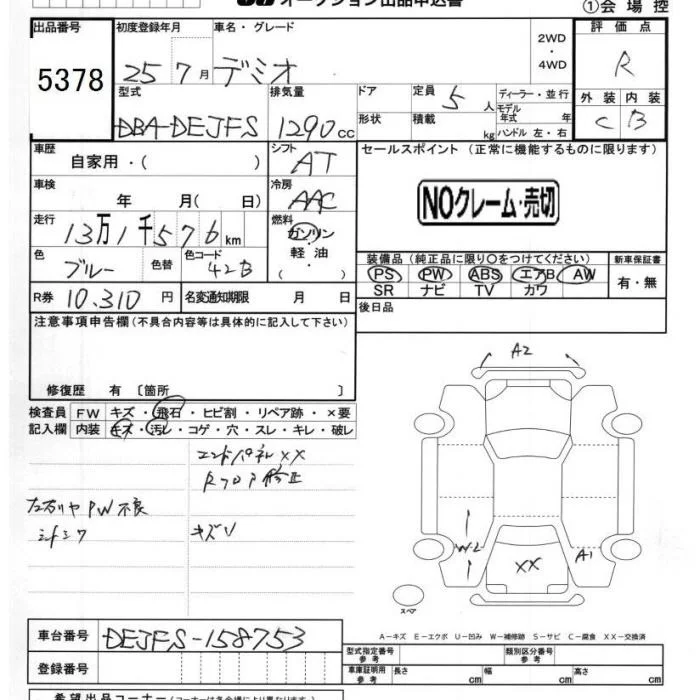 オークション出品申込書
①会場控
出品番号 初度登録年月 車名・グレード 評価点
5378 25 7月 デミオ 2WD ・ 4WD R
型式 排気量 ドア 定員 ディーラー・並行 外装 内装
DBA-DEJFS 1290cc 5人 モデル年式 年 C B
形状 積載 kg ハンドル 左・右
車歴 自家用・( ) シフト AT セールスポイント (正常に機能するものに限ります)
車検 年 月( 日) 冷房 AAC NOクレーム・売切
走行 13万1千576km 燃料 ガソリン 軽油 ( ・ )
色 ブルー 色替 色コード 42B 装備品 (純正品に限り○をつけてください) 新車保証書
PS PW ABS エアB AW 有・無
SR ナビ TV カワ
R券 10,310円 名変通知期限 月 日 後日品
注意事項申告欄(不具合内容等は具体的に記入して下さい)
修復歴 有 〔箇所 〕
A2
検査員 FW キズ・飛石・ヒビ割・リペア跡・×要
記入欄 内装 キズ・汚レ・コゲ・穴・スレ・キレ・破レ
エンドパネルXX
Rフロア修正
左右リヤPW不良
シートシワ キズV
W2 XX A1
スペア
A-キズ E-エクボ U-凹み W-補修跡 S-サビ C-腐食 XX-交換済
車台番号 DEJFS-158753
型式指定番号 参考 類別区分番号 参考
登録番号 車庫証明用 参考 長さ cm 幅 cm 高さ cm
希望出品コーナー(コーナーは各会場により異なります)